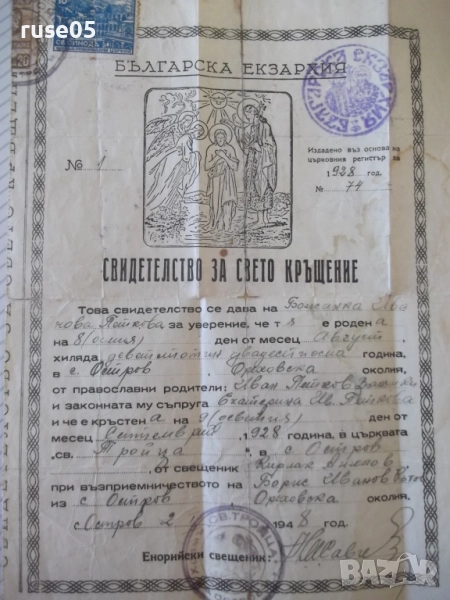 ruse05
БЪЛГАРСКА ЕКЗАРХИЯ
Издадено въз основа на
църковния регистър за
1928 год.
№ 1
№ 74
СВИДЕТЕЛСТВО ЗА СВЕТО КРЪЩЕНИЕ
Това свидетелство се дава на Божанка Ива
нова Петкова за уверение, че тя е родена
на 8 (осми) ден от месец Август
хиляда деветстотин двадесет и осма година,
в с. Остров Оряховска околия,
от православни родители: Иван Петков
и законната му съпруга Екатерина Ив. Петкова
и че е кръстена на 9 (девети) ден от
месец Септемврий 1928 година, в църквата
"св. Тройца" в с. Остров
, от свещеник Кирлак
при възприемничеството на Борис Иванов
из с. Остров Оряховска околия.
с. Остров 2 1948 год.
Енорийски свещеник:
СВ. ТРОИЦА
bazar.bg